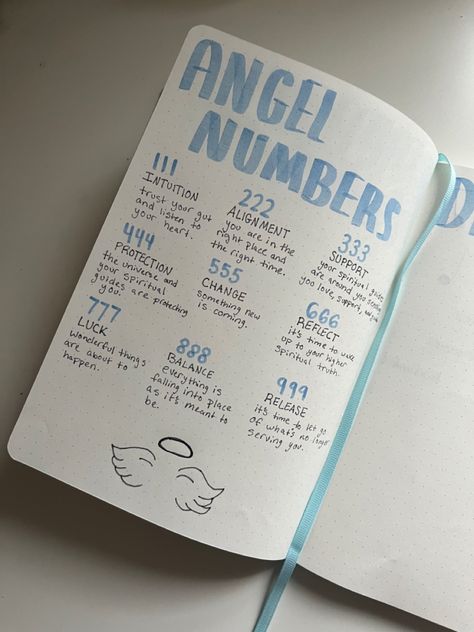 ANGEL
NUMBERS
111
INTUITION
trust your gut
and listen to
your heart.
222
ALIGNMENT
you are in the
right place and
the right time.
333
SUPPORT
your spiritual guides
are around you sending
you love, support, and
444
PROTECTION
the universe and
your spiritual
guides are protecting
you.
555
CHANGE
something new
is coming.
666
REFLECT
it's time to wake
up to your higher
spiritual truth.
777
LUCK
wonderful things
are about to
happen.
888
BALANCE
everything is
falling into place
as it's meant to
be.
999
RELEASE
it's time to let go
of what's no longer
serving you.